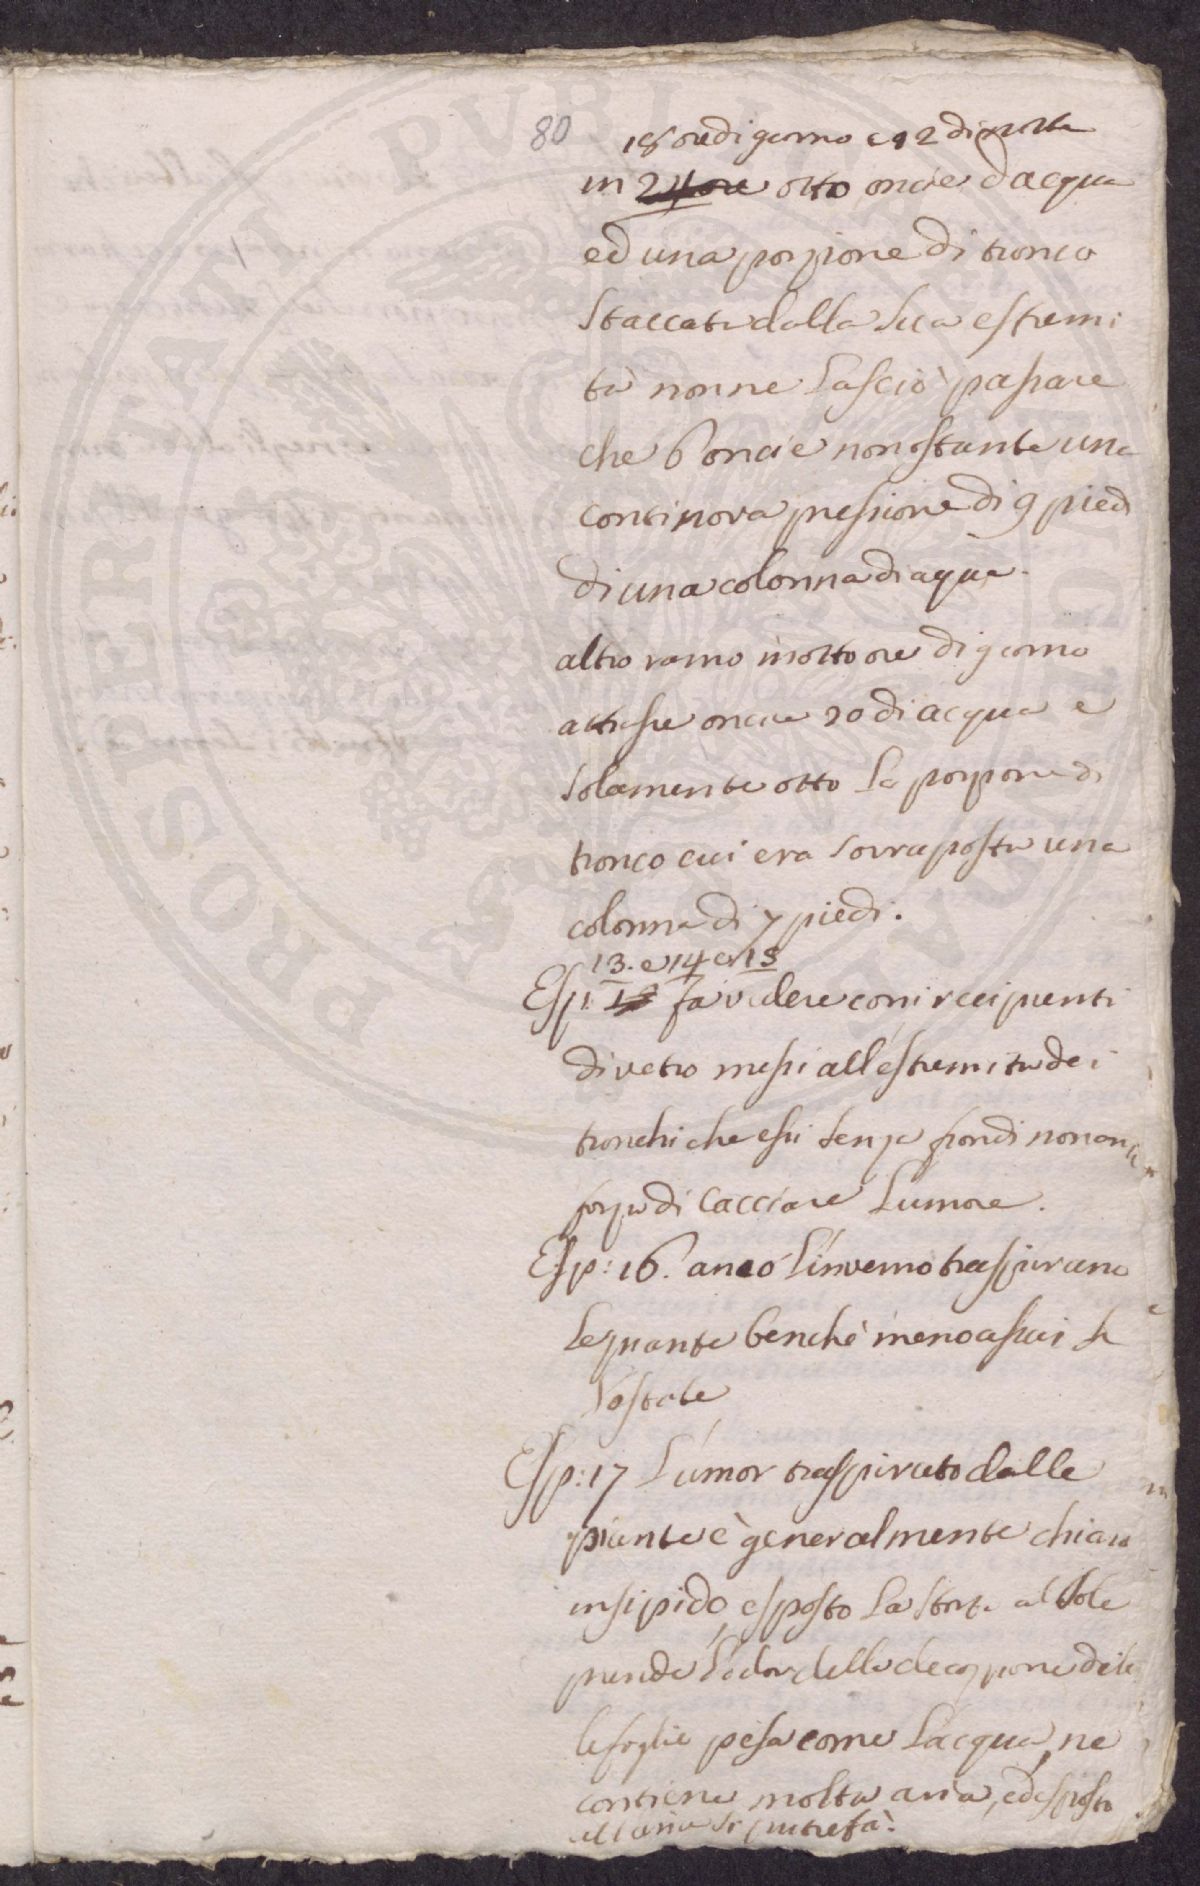 80
18 ore di giorno e 12 di notte
in 24 ore otto oncie d'acqua
ed una porzione di tronco
staccata dalla sua estremi
tà non ne lasciò passare
che 6 oncie nonostante una
continova pressione di 9 piedi
di una colonna di aqua.
altro ramo in otto ore di giorno
attrasse oncie 20 di acqua e
solamente otto la porzione di
tronco cui era sovraposta una
colonna di 7 piedi.
13. e 14 e 15
Esp: fa vedere con i recipienti
di vetro messi all'estremità dei
tronchi che essi senza frondi non an
forza di cacciare l'umore.
Esp: 16. anco l'inverno traspirano
le piante benchè meno assai
l'estate
Esp: 17 L'umor traspirato dalle
piante è generalmente chiaro
insipido, esposto la storta al sole
prende l'odor della decozione delle
le foglie pesa come l'acqua, ne
contiene molta aria, ed esposto
all'aria si putrefà.
PROSPERITATI PUBLICAE AUGENDAE